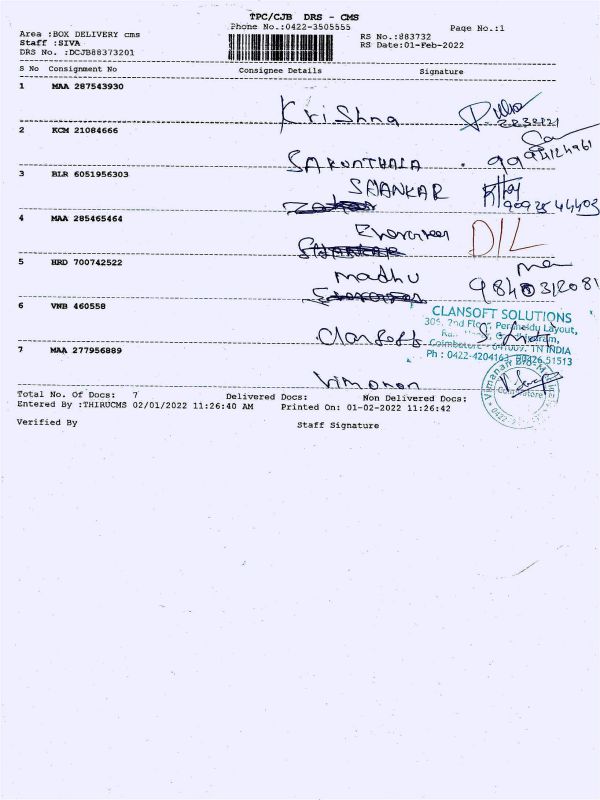 TPC/CJB DRS - CMS
Phone No.:0422-3505555
Page No.:1
Area :BOX DELIVERY cms
RS No.:883732
Staff :SIVA
RS Date:01-Feb-2022
DRS No. :DCJB88373201
S No Consignment No Consignee Details Signature
1 MAA 287543930
Krishna
2 KCM 21084666
SAKUNTHALA
3 BLR 6051956303
SHANKAR
4 MAA 285465464
Evergreen D/L
5 HRD 700742522
madhu
6 VNB 460558
CLANSOFT SOLUTIONS
305, 2nd Floor, Perumeidu Layout,
Coimbatore - 641009, TN INDIA
Ph : 0422-4204163, 99426 51513
Clansoft
7 MAA 277956889
Vimanan
Total No. Of Docs: 7 Delivered Docs: Non Delivered Docs:
Entered By :THIRUCMS 02/01/2022 11:26:40 AM Printed On: 01-02-2022 11:26:42
Verified By Staff Signature